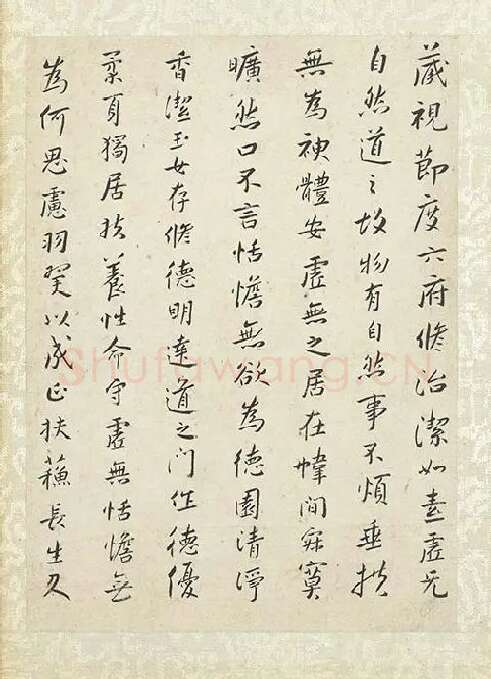 藏視節度六府脩治潔如素虛无
自然道之故物有自然事不煩垂拱
無為神體安虛無之居在幃間寂寞
曠然口不言恬憺無欲為德園清淨
香潔玉女存脩德明達道之門作德優
柔身獨居扶養性命守虛無恬憺無
為何思慮羽翼以成正扶蘓長生久
Shufawang.CN